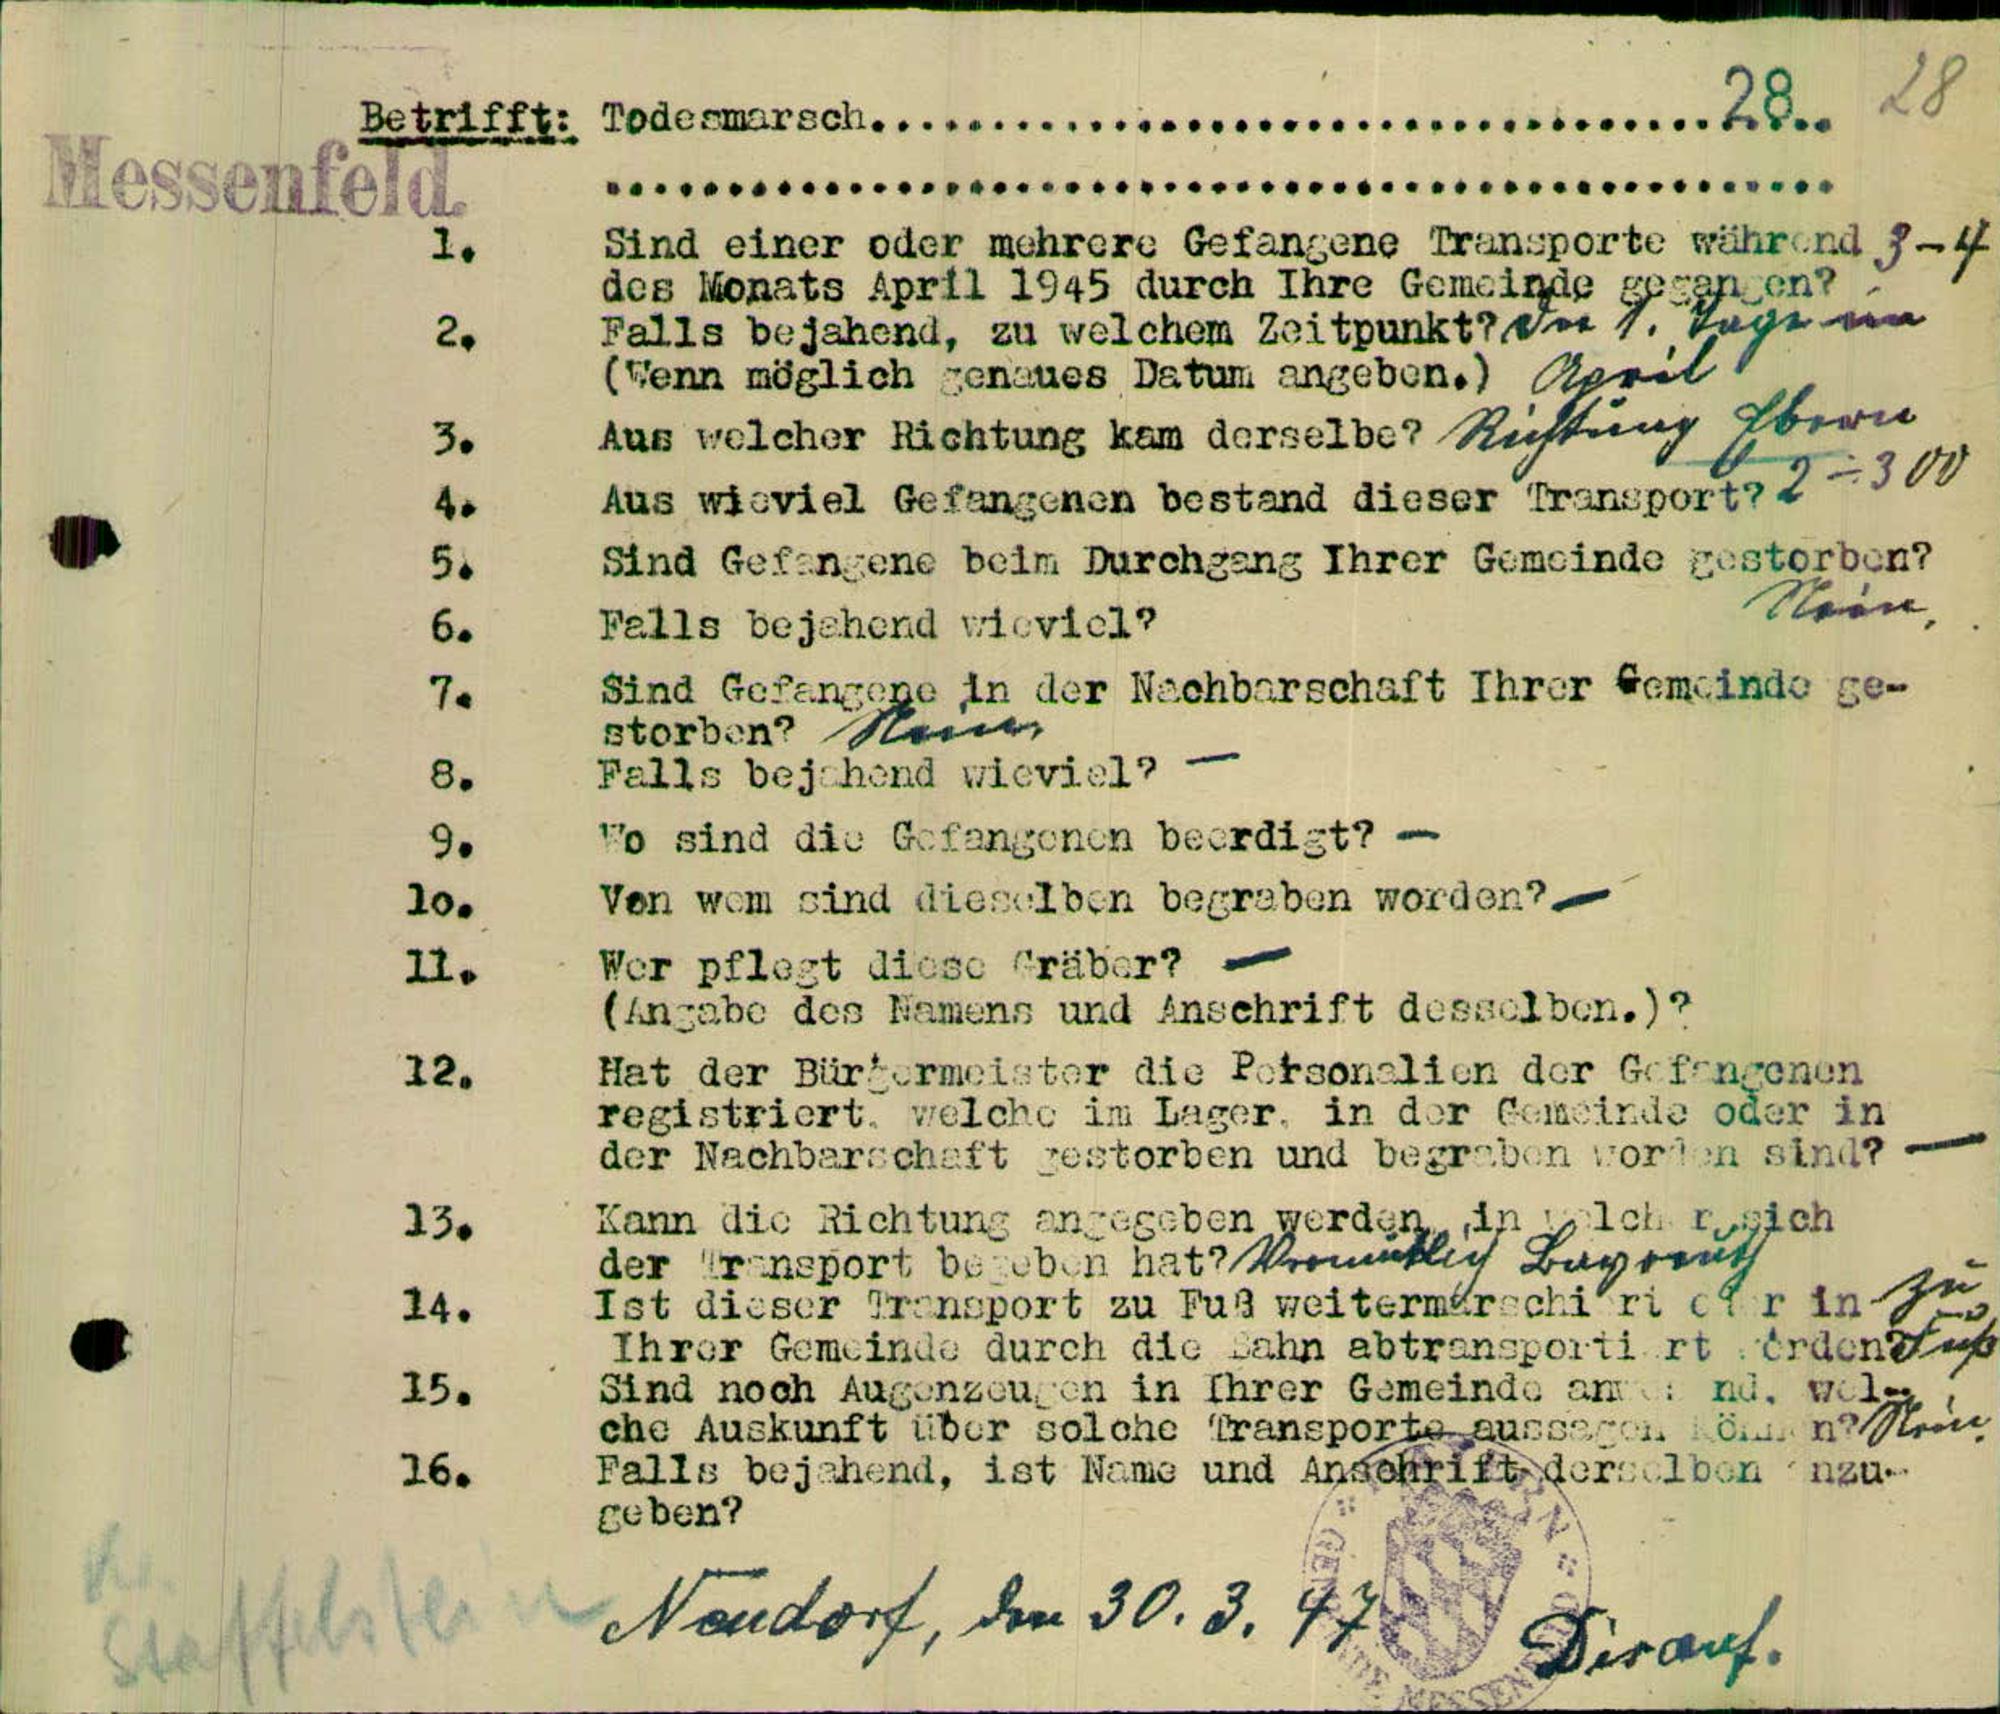 28
Betrifft: Todesmarsch.......................................28..
Messenfeld.
..................................................
1. Sind einer oder mehrere Gefangene Transporte während 3-4
des Monats April 1945 durch Ihre Gemeinde gegangen?
2. Falls bejahend, zu welchem Zeitpunkt? 1. Tage im
(Wenn möglich genaues Datum angeben.) April
3. Aus welcher Richtung kam derselbe? Richtung Ebern
4. Aus wieviel Gefangenen bestand dieser Transport? 2-300
5. Sind Gefangene beim Durchgang Ihrer Gemeinde gestorben?
Nein.
6. Falls bejahend wieviel?
7. Sind Gefangene in der Nachbarschaft Ihrer Gemeinde ge-
storben? Nein.
8. Falls bejahend wieviel? —
9. Wo sind die Gefangenen beerdigt? —
10. Von wem sind dieselben begraben worden? —
11. Wer pflegt diese Gräber? —
(Angabe des Namens und Anschrift desselben.)?
12. Hat der Bürgermeister die Personalien der Gefangenen
registriert, welche im Lager, in der Gemeinde oder in
der Nachbarschaft gestorben und begraben worden sind? —
13. Kann die Richtung angegeben werden, in welcher sich
der Transport begeben hat? Vermutlich Bayreuth
14. Ist dieser Transport zu Fuß weitermarschiert oder in zu
Ihrer Gemeinde durch die Bahn abtransportiert worden? Fuß
15. Sind noch Augenzeugen in Ihrer Gemeinde anwesend, wel-
che Auskunft über solche Transporte aussagen können? Nein.
16. Falls bejahend, ist Name und Anschrift derselben anzu-
geben?
Kr.
Staffelstein
Neudorf, den 30. 3. 47
Dirauf.
GEMEINDE MESSENFELD